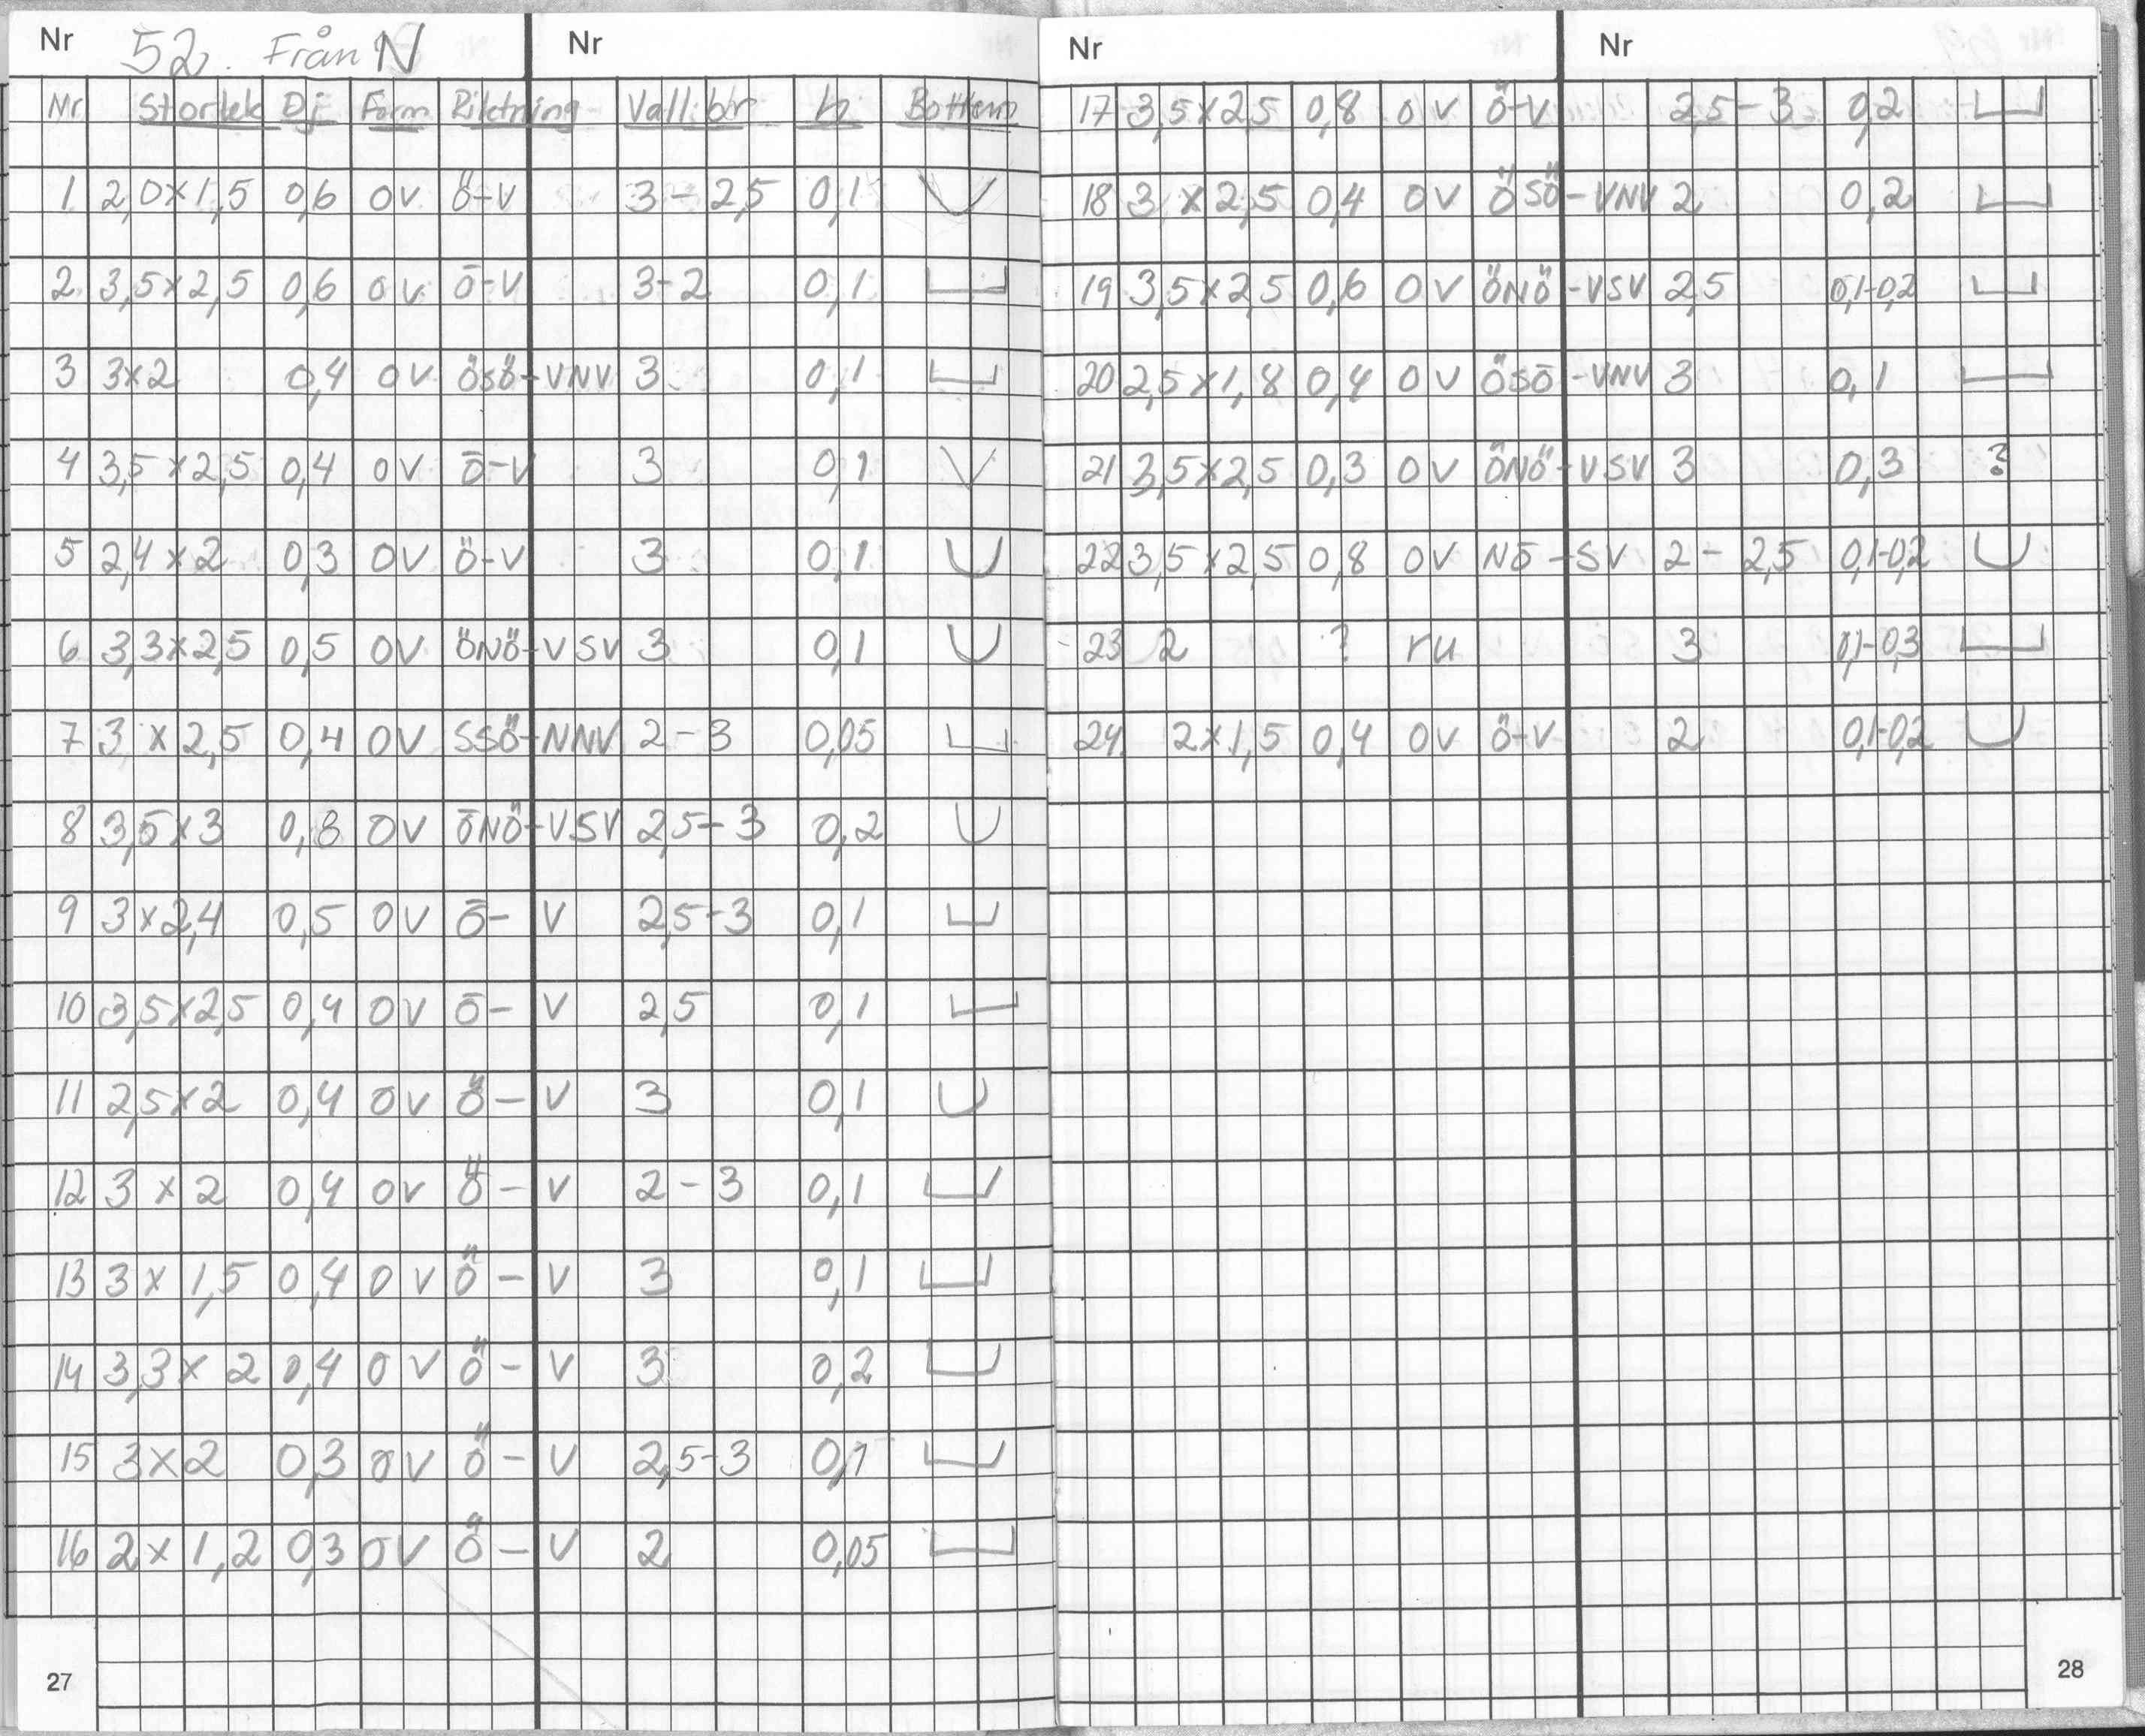 Nr 52. Från N Nr
Nr Storlek Dj Form Riktning Vall:br h Botten
1 2,0x1,5 0,6 OV Ö-V 3-2,5 0,1
2 3,5x2,5 0,6 OV Ö-V 3-2 0,1
3 3x2 0,4 OV ÖSÖ-VNV 3 0,1
4 3,5x2,5 0,4 OV Ö-V 3 0,1
5 2,4x2 0,3 OV Ö-V 3 0,1
6 3,3x2,5 0,5 OV ÖNÖ-VSV 3 0,1
7 3x2,5 0,4 OV SSÖ-NNV 2-3 0,05
8 3,5x3 0,8 OV ÖNÖ-VSV 2,5-3 0,2
9 3x2,4 0,5 OV Ö-V 2,5-3 0,1
10 3,5x2,5 0,4 OV Ö-V 2,5 0,1
11 2,5x2 0,4 OV Ö-V 3 0,1
12 3x2 0,4 OV Ö-V 2-3 0,1
13 3x1,5 0,4 OV Ö-V 3 0,1
14 3,3x2 0,4 OV Ö-V 3 0,2
15 3x2 0,3 OV Ö-V 2,5-3 0,1
16 2x1,2 0,3 OV Ö-V 2 0,05
27
Nr Nr
17 3,5x2,5 0,8 OV Ö-V 2,5-3 0,2
18 3x2,5 0,4 OV ÖSÖ-VNV 2 0,2
19 3,5x2,5 0,6 OV ÖNÖ-VSV 2,5 0,1-0,2
20 2,5x1,8 0,4 OV ÖSÖ-VNV 3 0,1
21 3,5x2,5 0,3 OV ÖNÖ-VSV 3 0,3 ?
22 3,5x2,5 0,8 OV NÖ-SV 2-2,5 0,1-0,2
23 2 ? ru 3 0,1-0,3
24. 2x1,5 0,4 OV Ö-V 2 0,1-0,2
28